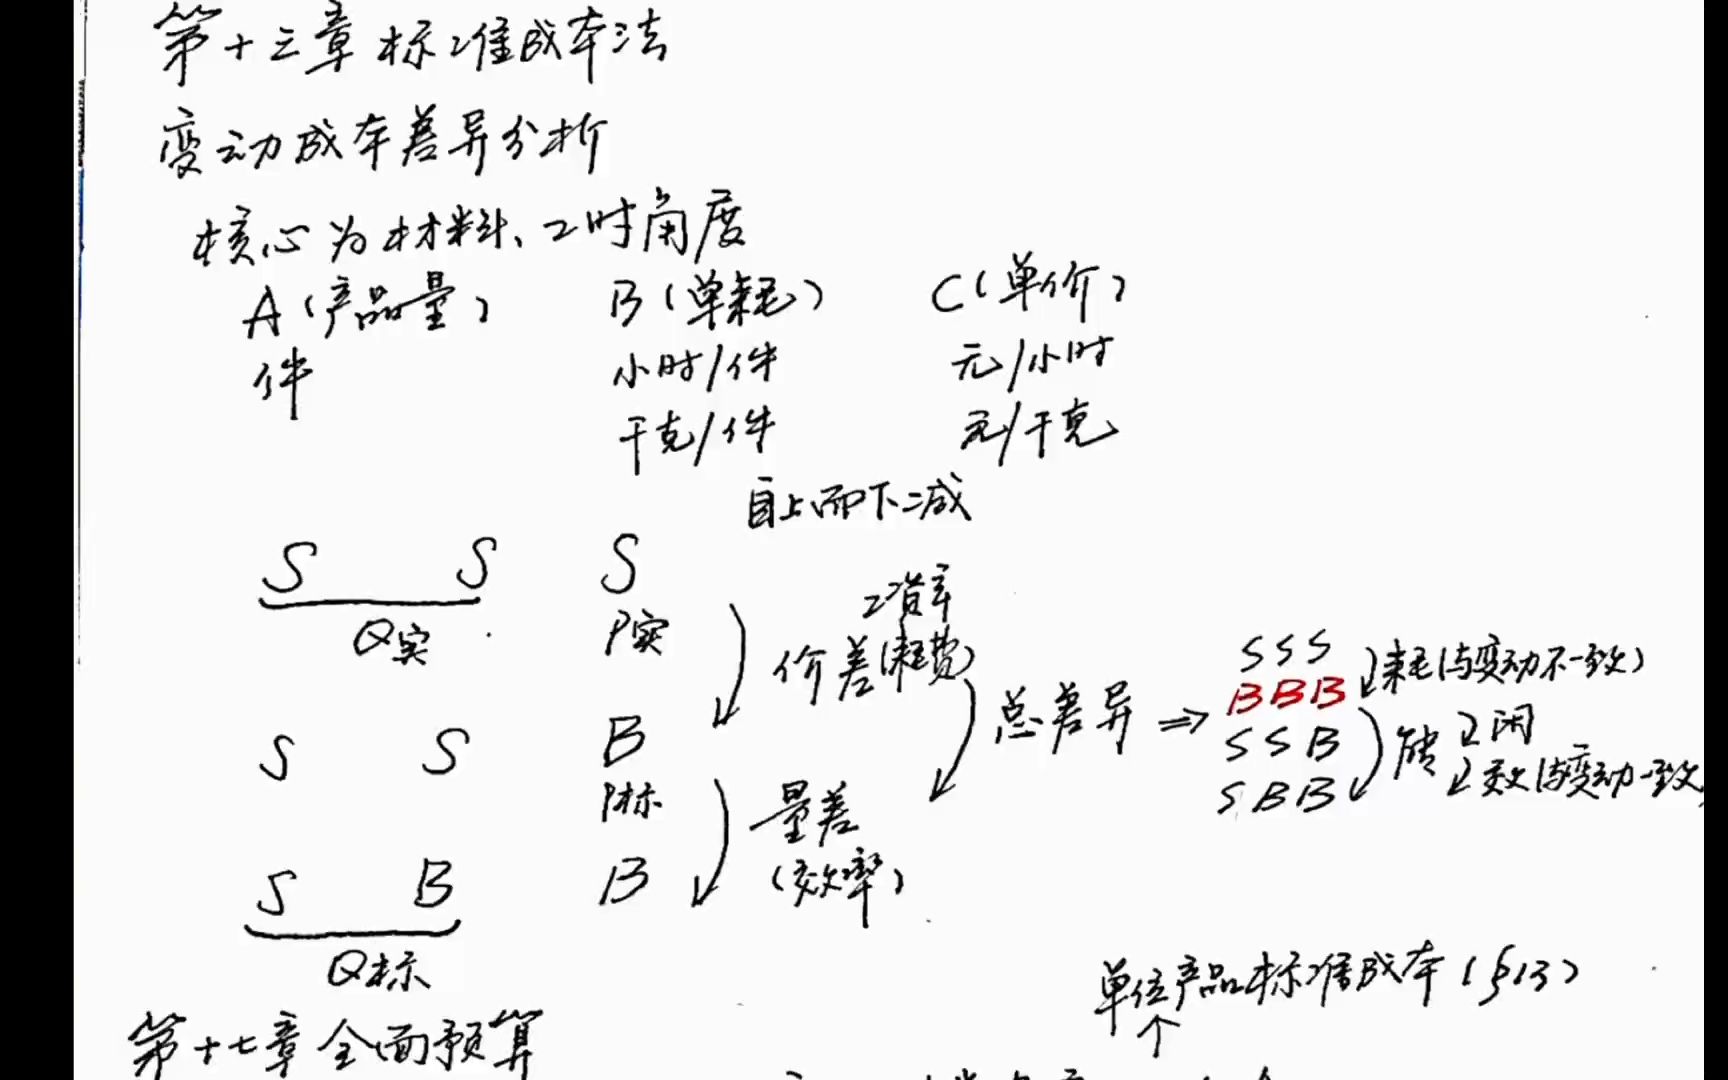 第十三章 标准成本法
变动成本差异分析
核心为材料、工时角度
A(产品量) B(单耗) C(单价)
件 小时/件 元/小时
千克/件 元/千克
自上而下减
S S S
Q实 P实
工资率
价差(耗费)
S S B
P标
量差
(效率)
S B B
Q标
总差异 ⇒
SSS
BBB
SSB
SBB
耗(与变动不一致)
能
闲
效(与变动一致)
单位产品标准成本(§13)
第十七章 全面预算